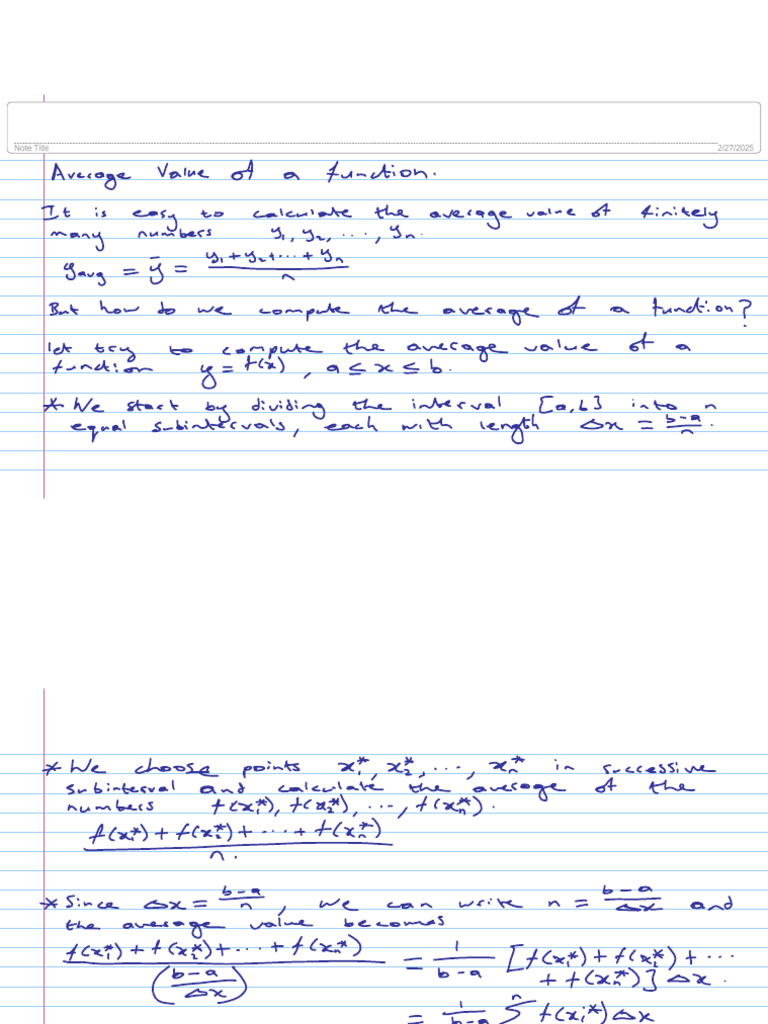 Note Title
2/27/2025
Average Value of a function.
It is easy to calculate the average value of finitely
many numbers y₁, y₂, ..., yₙ.
y_avg = ȳ = (y₁+y₂+...+yₙ)/n
But how do we compute the average of a function?
let try to compute the average value of a
function y = f(x), a ≤ x ≤ b.
* We start by dividing the interval [a,b] into n
equal subintervals, each with length Δx = (b-a)/n.
* We choose points x₁*, x₂*, ..., xₙ* in successive
subinterval and calculate the average of the
numbers f(x₁*), f(x₂*), ..., f(xₙ*).
(f(x₁*) + f(x₂*) + ... + f(xₙ*))/n.
* Since Δx = (b-a)/n, we can write n = (b-a)/Δx and
the average value becomes
(f(x₁*) + f(x₂*) + ... + f(xₙ*))/((b-a)/Δx) = 1/(b-a) [f(x₁*) + f(x₂*) + ...
+ f(xₙ*)] Δx.
= 1/(b-a) Σⁿ f(xᵢ*) Δx